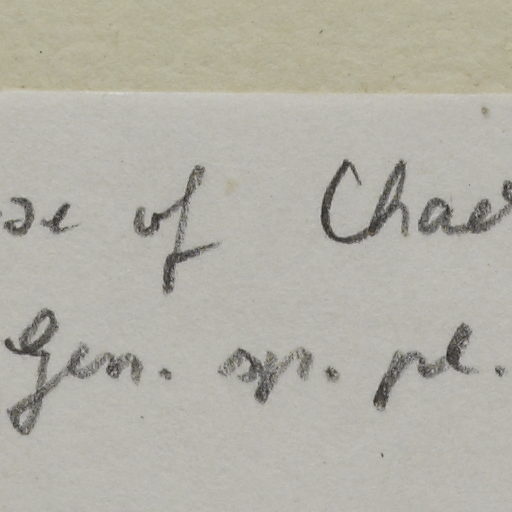 of Chae
Gen. sp. pl.